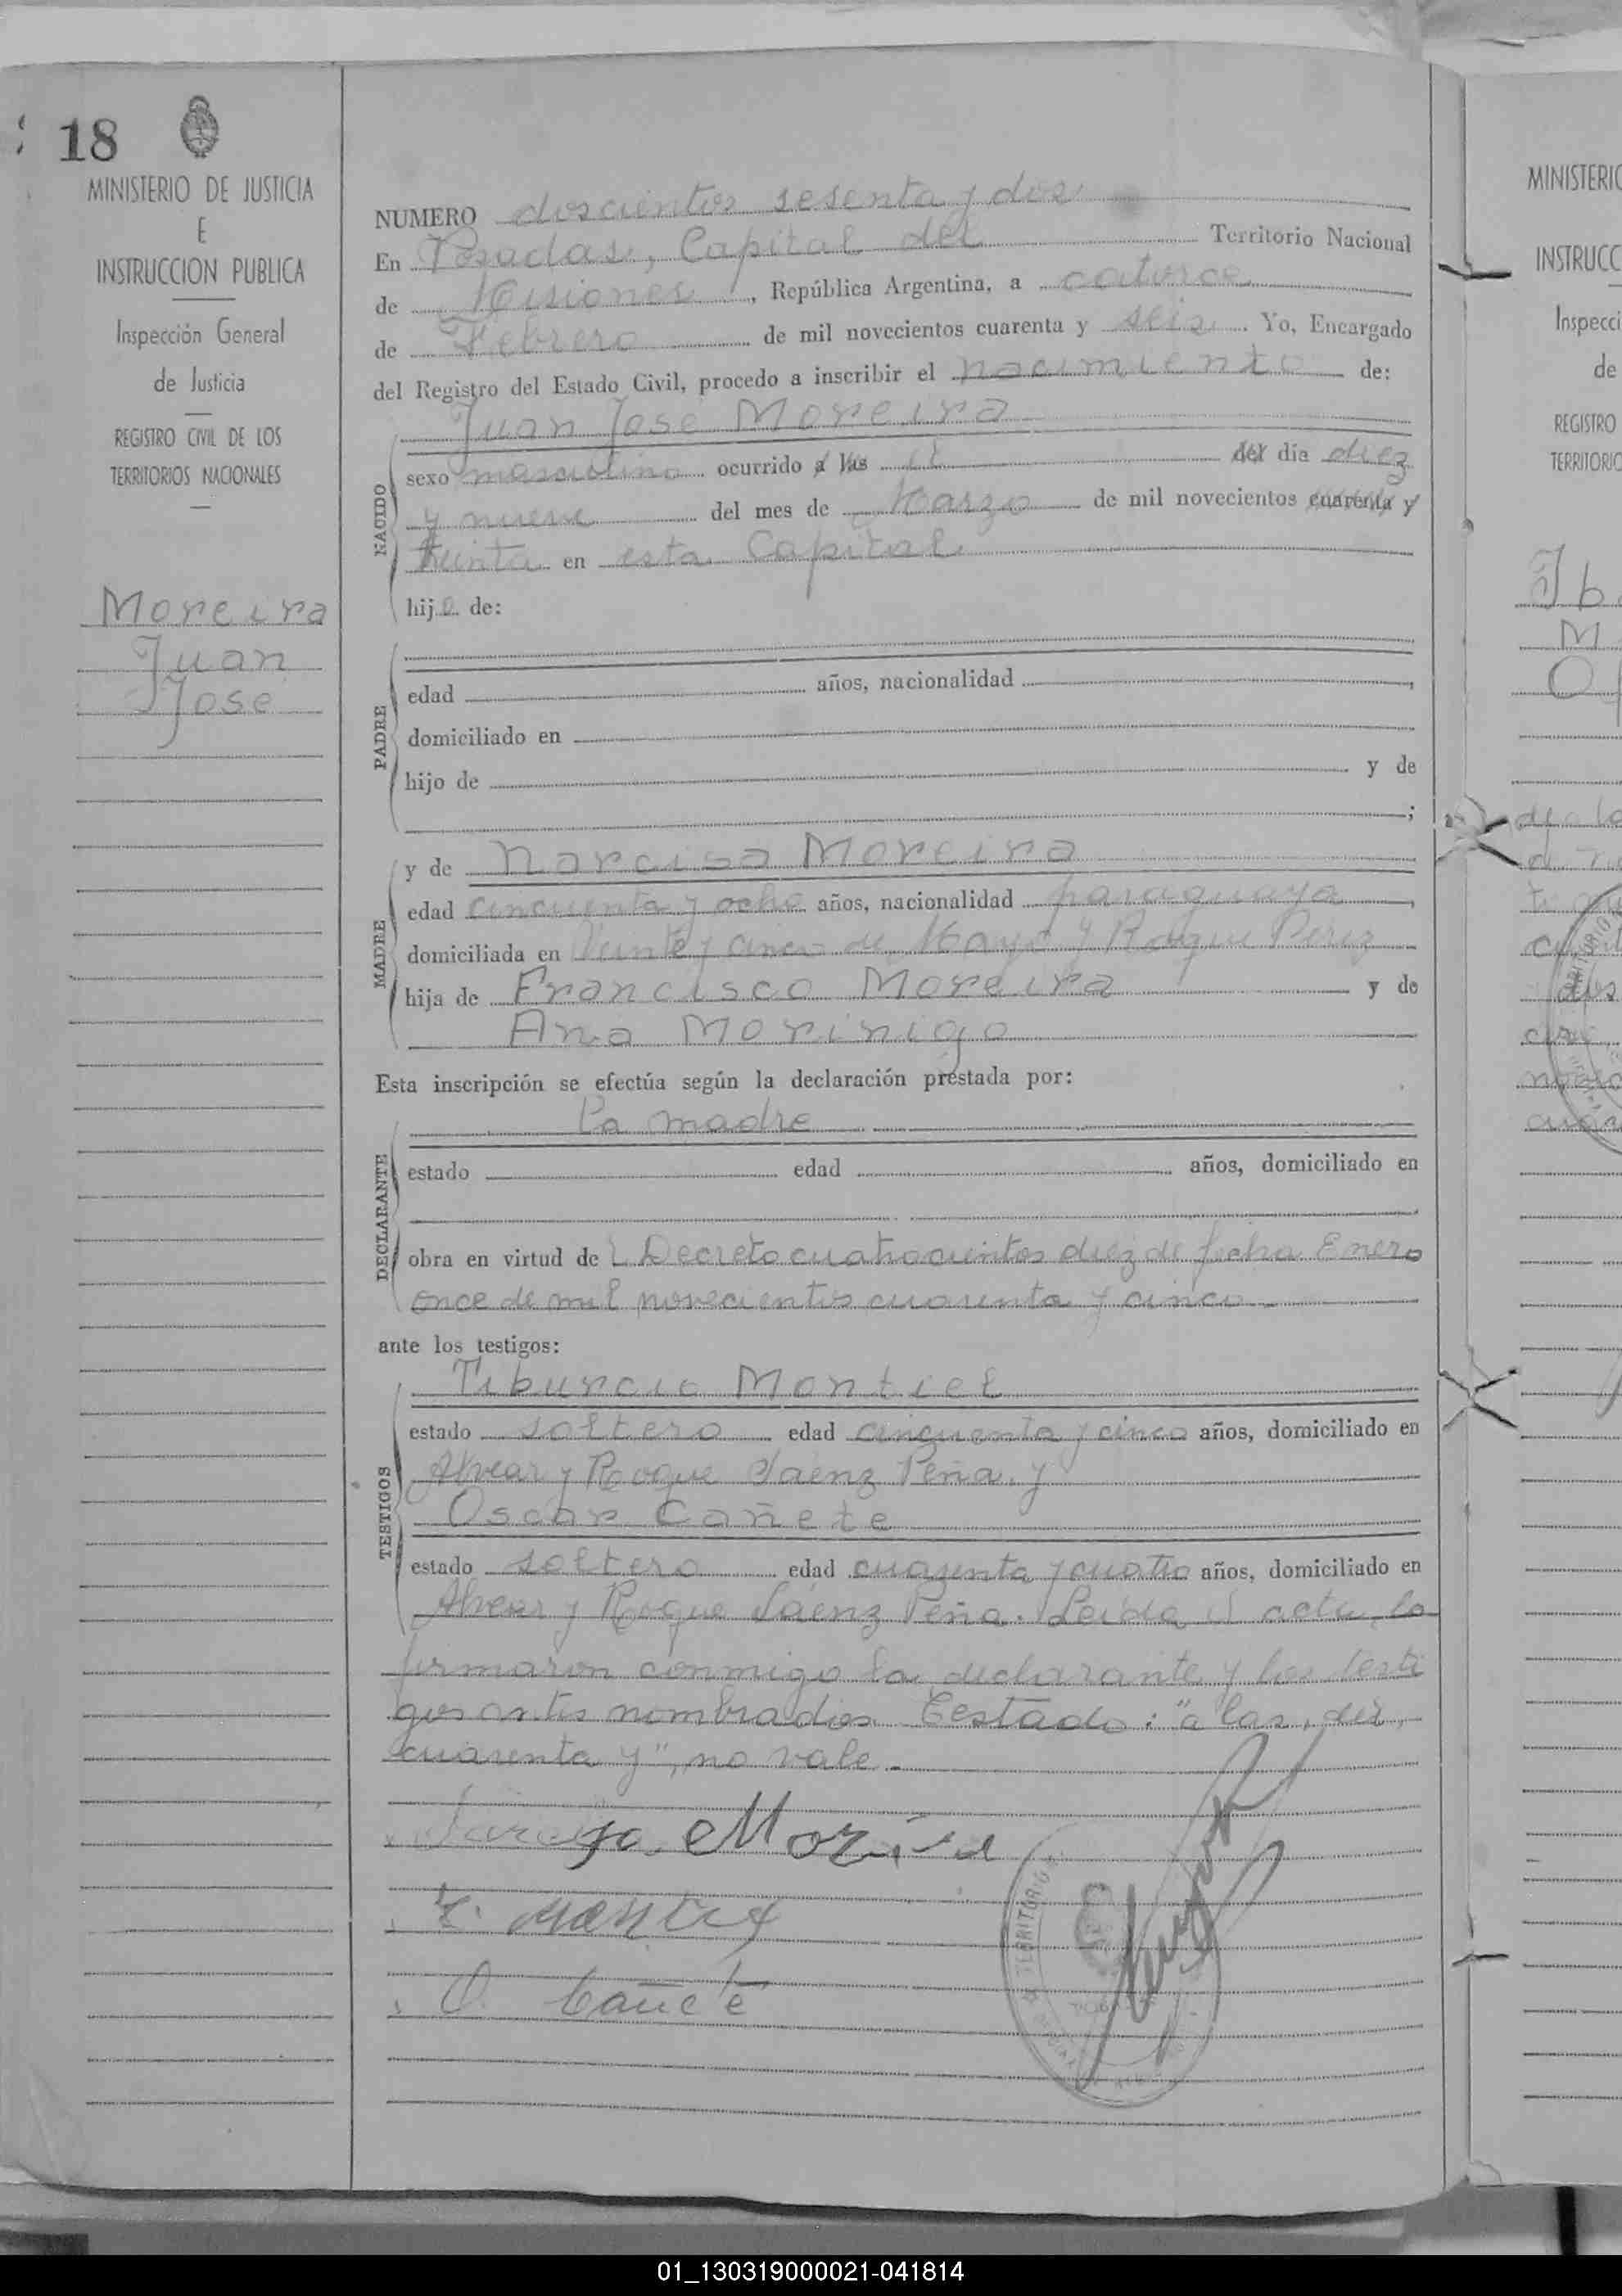 18
MINISTERIO DE JUSTICIA
E
INSTRUCCION PUBLICA
Inspección General
de Justicia
REGISTRO CIVIL DE LOS
TERRITORIOS NACIONALES
Moreira
Juan
Jose
NUMERO doscientos sesenta y dos
En Posadas, Capital del Territorio Nacional
de Misiones, República Argentina, a catorce
de Febrero de mil novecientos cuarenta y seis. Yo, Encargado
del Registro del Estado Civil, procedo a inscribir el nacimiento de:
Juan Jose Moreira
NACIDO
sexo masculino ocurrido a las el del dia diez
y nueve del mes de Marzo de mil novecientos cuarenta y
treinta en esta Capital
hijo de:
PADRE
edad años, nacionalidad
domiciliado en
hijo de y de
;
MADRE
y de Narcisa Moreira
edad cincuenta y ocho años, nacionalidad paraguaya
domiciliada en Veinte y cinco de Mayo y Roque Perez
hija de Francisco Moreira y de
Ana Morinigo
Esta inscripción se efectúa según la declaración prestada por:
DECLARANTE
La madre
estado edad años, domiciliado en
obra en virtud de Decreto cuatrocientos diez de fecha Enero
once de mil novecientos cuarenta y cinco
ante los testigos:
TESTIGOS
Tiburcio Montiel
estado soltero edad cinquenta y cinco años, domiciliado en
Alvear y Roque Saenz Peña. y
Oscar Cañete
estado soltero edad cuarenta y cuatro años, domiciliado en
Alvear y Roque Saenz Peña. Leída el acta, la
firmaron conmigo la declarante y los testi
gos antes nombrados. Testado: "a las, del,
cuarenta y", no vale.-
Moreira
O. Cañete
TERRITORIO
MINISTERIO
INSTRUCC
Inspecci
de
REGISTRO
TERRITORIO
01_130319000021-041814